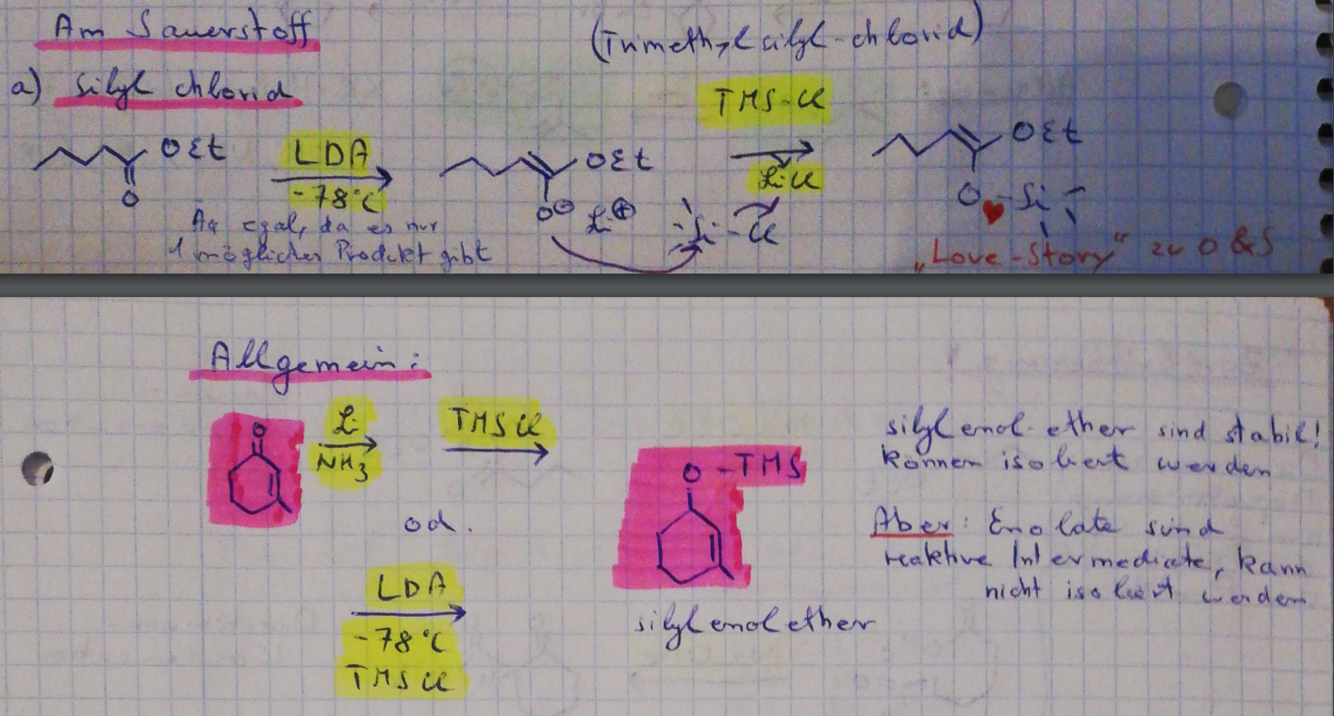 Am Sauerstoff
(Trimethylsilyl-chlorid)
a) Silyl chlorid
TMS-Cl
OEt
LDA
OEt
OEt
O
-78°C
O⊖ Li⊕
LiCl
O-Si
Si-Cl
egal, da es nur
1 möglicher Produkt gibt
"Love-Story" zw O & S
Allgemein:
O
Li
NH3
TMSCl
O-TMS
silylenol-ether sind stabil!
können isoliert werden
od.
Aber: Enolate sind
reaktive Intermediate, kann
nicht isoliert werden
LDA
-78°C
TMSCl
silylenolether